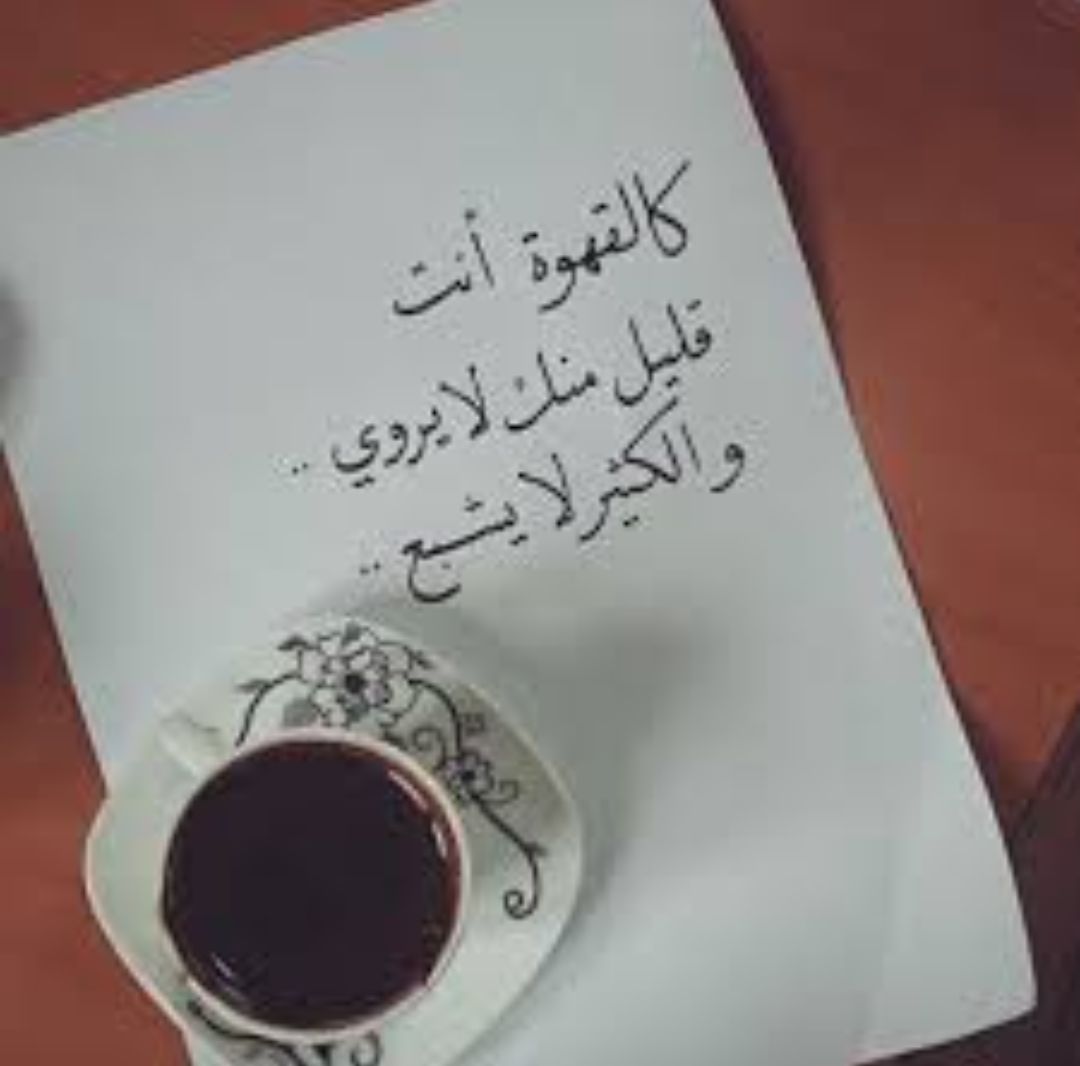 كالقهوة أنت
قليل منك لا يروي ..
والكثير لا يشبع ..